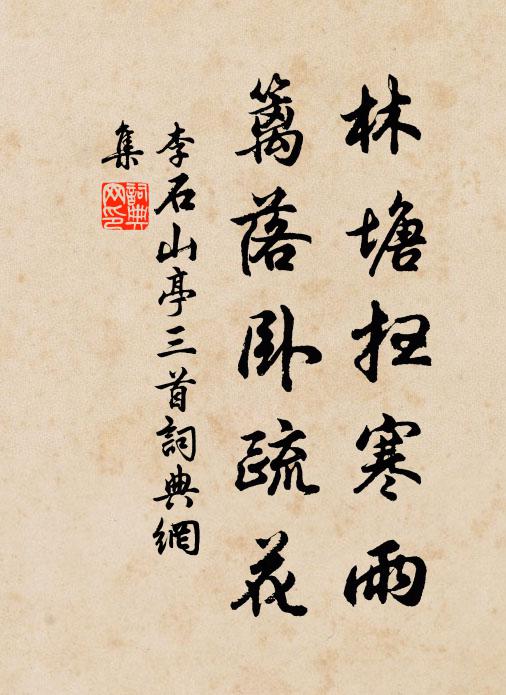 林塘扫寒雨
篱落卧疏花
李石山亭三首詞典網
集
詞典
网印